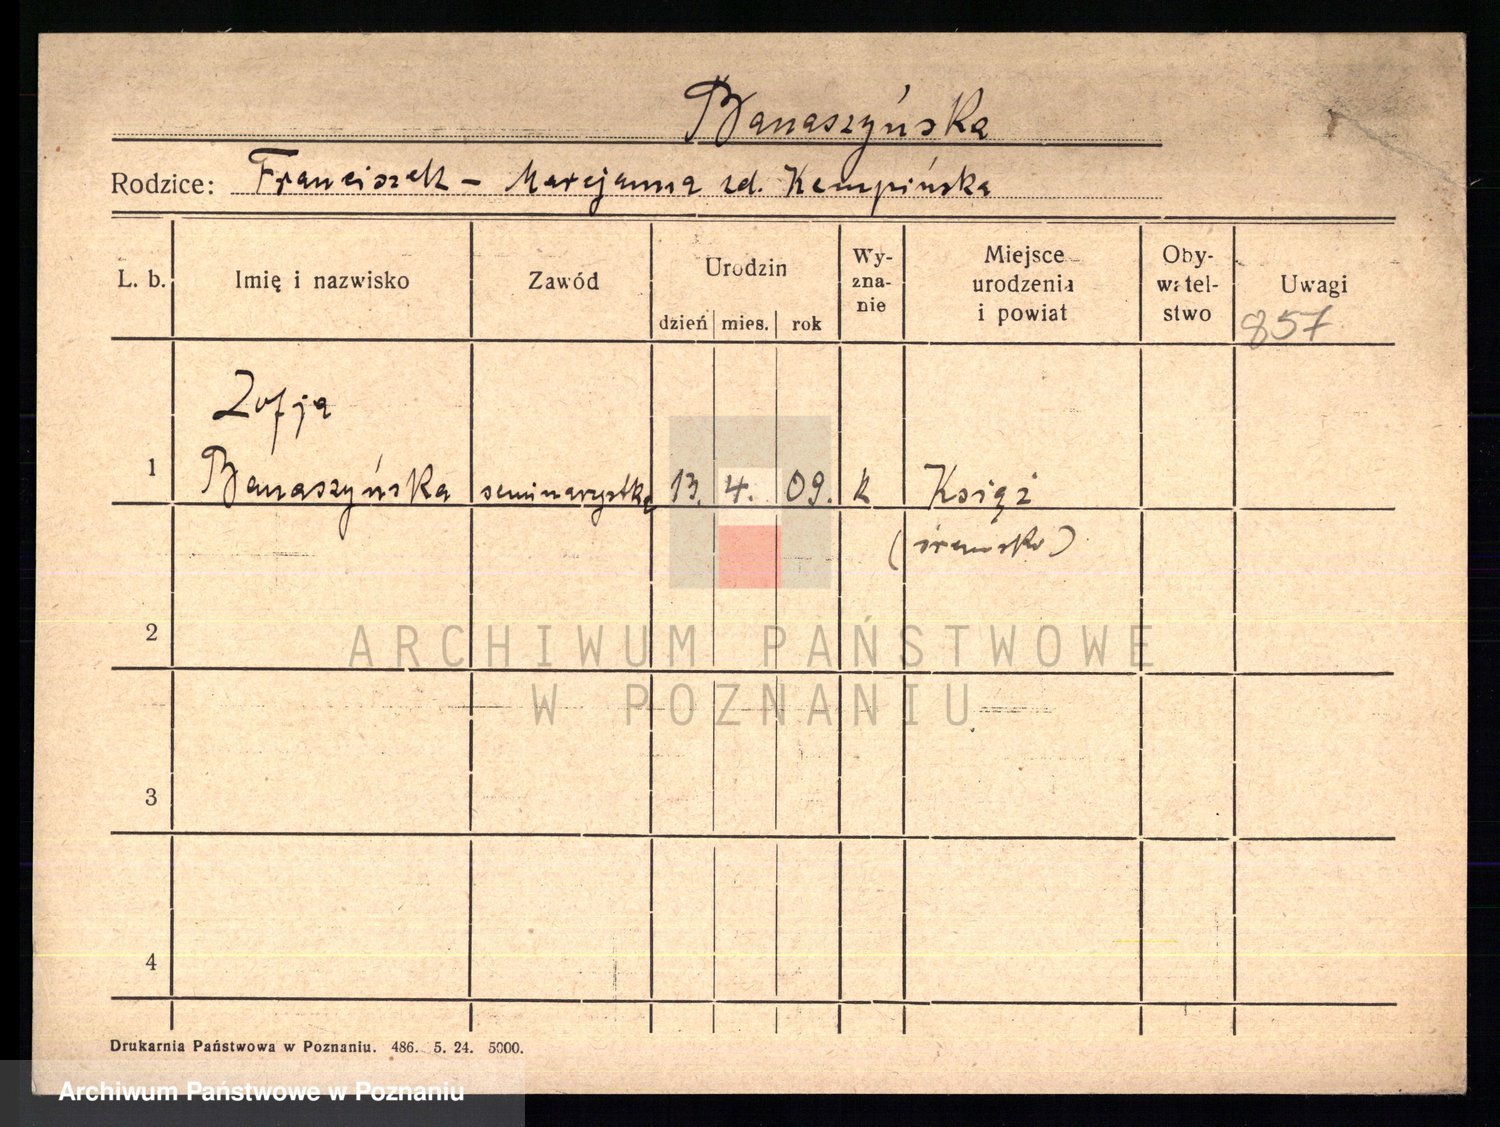 Banaszyńska
Rodzice: Franciszek – Marcjanna zd. Kempińska
L. b. Imię i nazwisko Zawód Urodzin dzień mies. rok Wy-zna-nie Miejsce urodzenia i powiat Oby-watel-stwo Uwagi
857
Zofja
1 Banaszyńska seminarzystka 13. 4. 09. k Książ
(śremski)
2
ARCHIWUM PAŃSTWOWE
W POZNANIU
3
4
Drukarnia Państwowa w Poznaniu. 486. 5. 24. 5000.
Archiwum Państwowe w Poznaniu